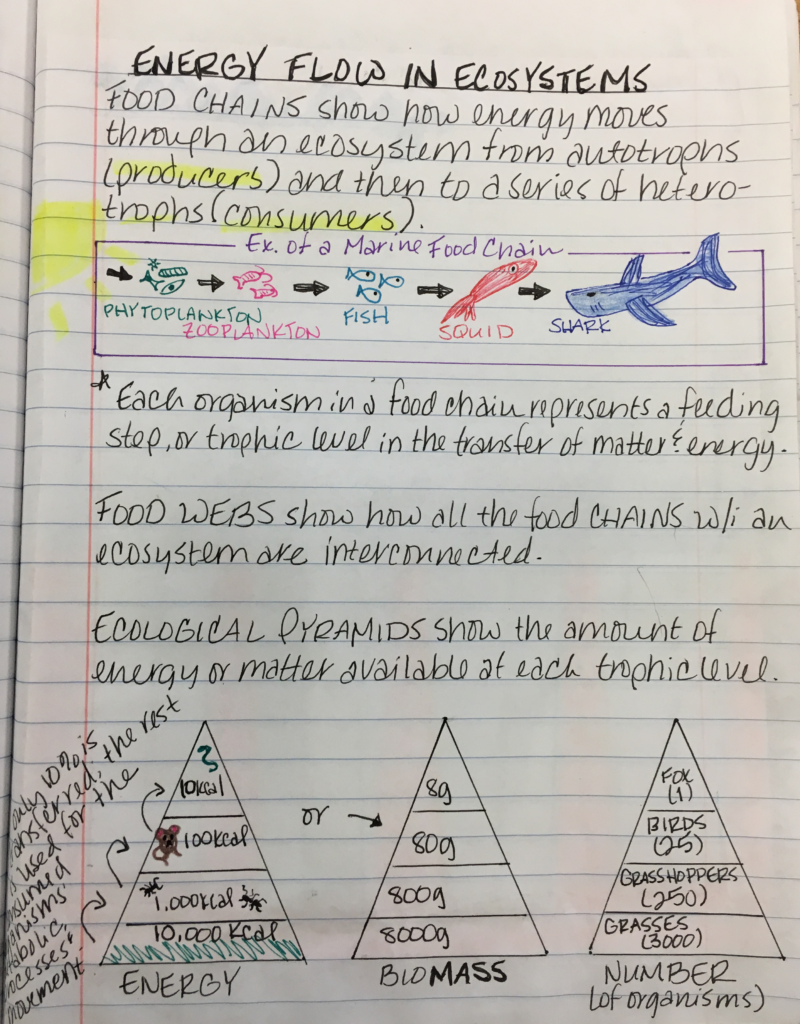 ENERGY FLOW IN ECOSYSTEMS
FOOD CHAINS show how energy moves
through an ecosystem from autotrophs
(producers) and then to a series of hetero-
trophs (consumers).
Ex. of a Marine Food Chain
PHYTOPLANKTON
ZOOPLANKTON
FISH
SQUID
SHARK
*Each organism in a food chain represents a feeding
step, or trophic level in the transfer of matter & energy.
FOOD WEBS show how all the food CHAINS w/i an
ecosystem are interconnected.
ECOLOGICAL PYRAMIDS show the amount of
energy or matter available at each trophic level.
only 10% is
transferred, the rest
is used for the
consumed
organisms'
metabolic
processes &
movement
10 Kcal
100 Kcal
1,000 Kcal
10,000 Kcal
ENERGY
or
8g
80g
800g
8000g
BIOMASS
FOX
(1)
BIRDS
(25)
GRASSHOPPERS
(250)
GRASSES
(3000)
NUMBER
(of organisms)